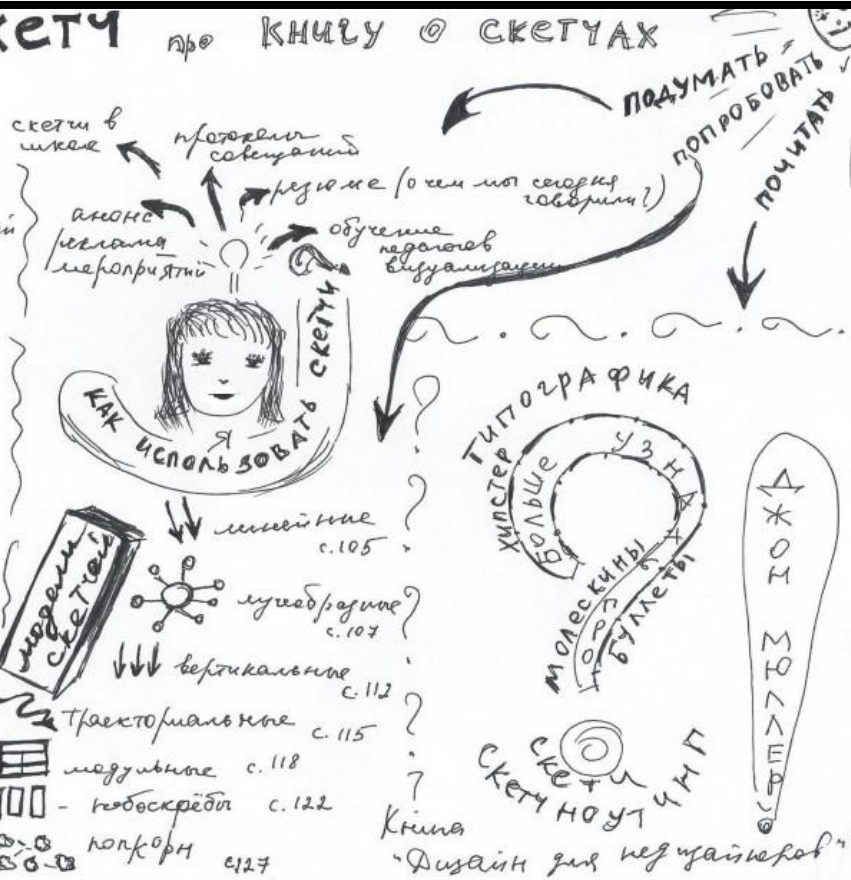 кетч про КНИГУ о СКЕТЧАХ
ПОДУМАТЬ
ПОПРОБОВАТЬ
ПОЧИТАТЬ
скетчи в
школе
протоколы
совещаний
резюме (о чем мы сегодня
говорили?)
анонс
реклама
мероприятий
обучение
педагогов
визуализации
КАК Я ИСПОЛЬЗОВАТЬ СКЕТЧИ
модели
скетчей
линейные
с.105
лучеобразные
с.107
вертикальные
с.112
Траекториальные с.115
модульные с.118
- небоскрёбы с.122
попкорн с127
ТИПОГРАФИКА
ХИПСТЕР
БОЛЬШЕ УЗНАТЬ ПРО
МОЛЕСКИНЫ
БУЛЛЕТЫ
СКЕТЧ
СКЕТЧНОУТИНГ
ДЖОН МЮЛЛЕР
Книга
"Дизайн для недизайнеров"